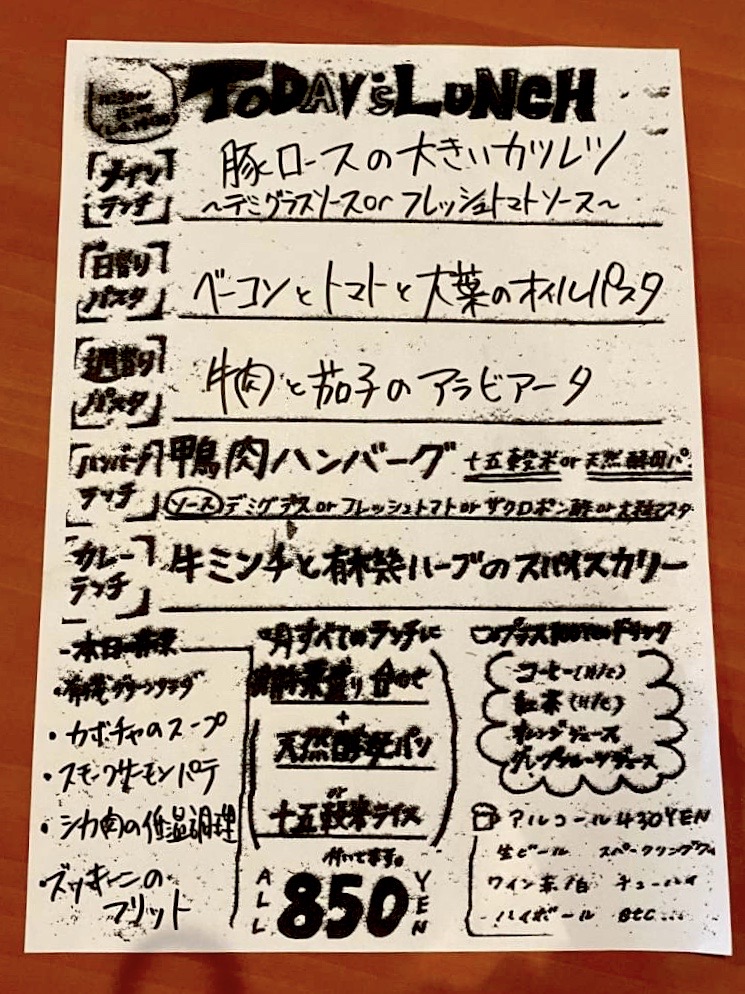 TODAY'S LUNCH
メインランチ
豚ロースの大きいカツレツ
〜デミグラスソースor フレッシュトマトソース〜
日替りパスタ
ベーコンとトマトと大葉のオイルパスタ
週替りパスタ
牛肉と茄子のアラビアータ
ハンバーグランチ
鴨肉ハンバーグ 十五穀米or天然酵母パ
ソース デミグラスorフレッシュトマトorザクロポン酢or大粒マスタ
カレーランチ
牛ミンチと有機ハーブのスパイスカリー
本日の前菜
・カボチャのスープ
・スモークサーモンパテ
・シカ肉の低温調理
・ズッキーニの
フリット
すべてのランチに
前菜盛り合わせ
+
天然酵母パン
or
十五穀米ライス
付いてます。
ALL 850 YEN
プラス100YENドリンク
コーヒー(H/C)
紅茶(H/C)
オレンジジュース
グレープフルーツジュース
アルコール 430YEN
生ビール スパークリングワイ
ワイン赤/白 チューハイ
ハイボール etc...